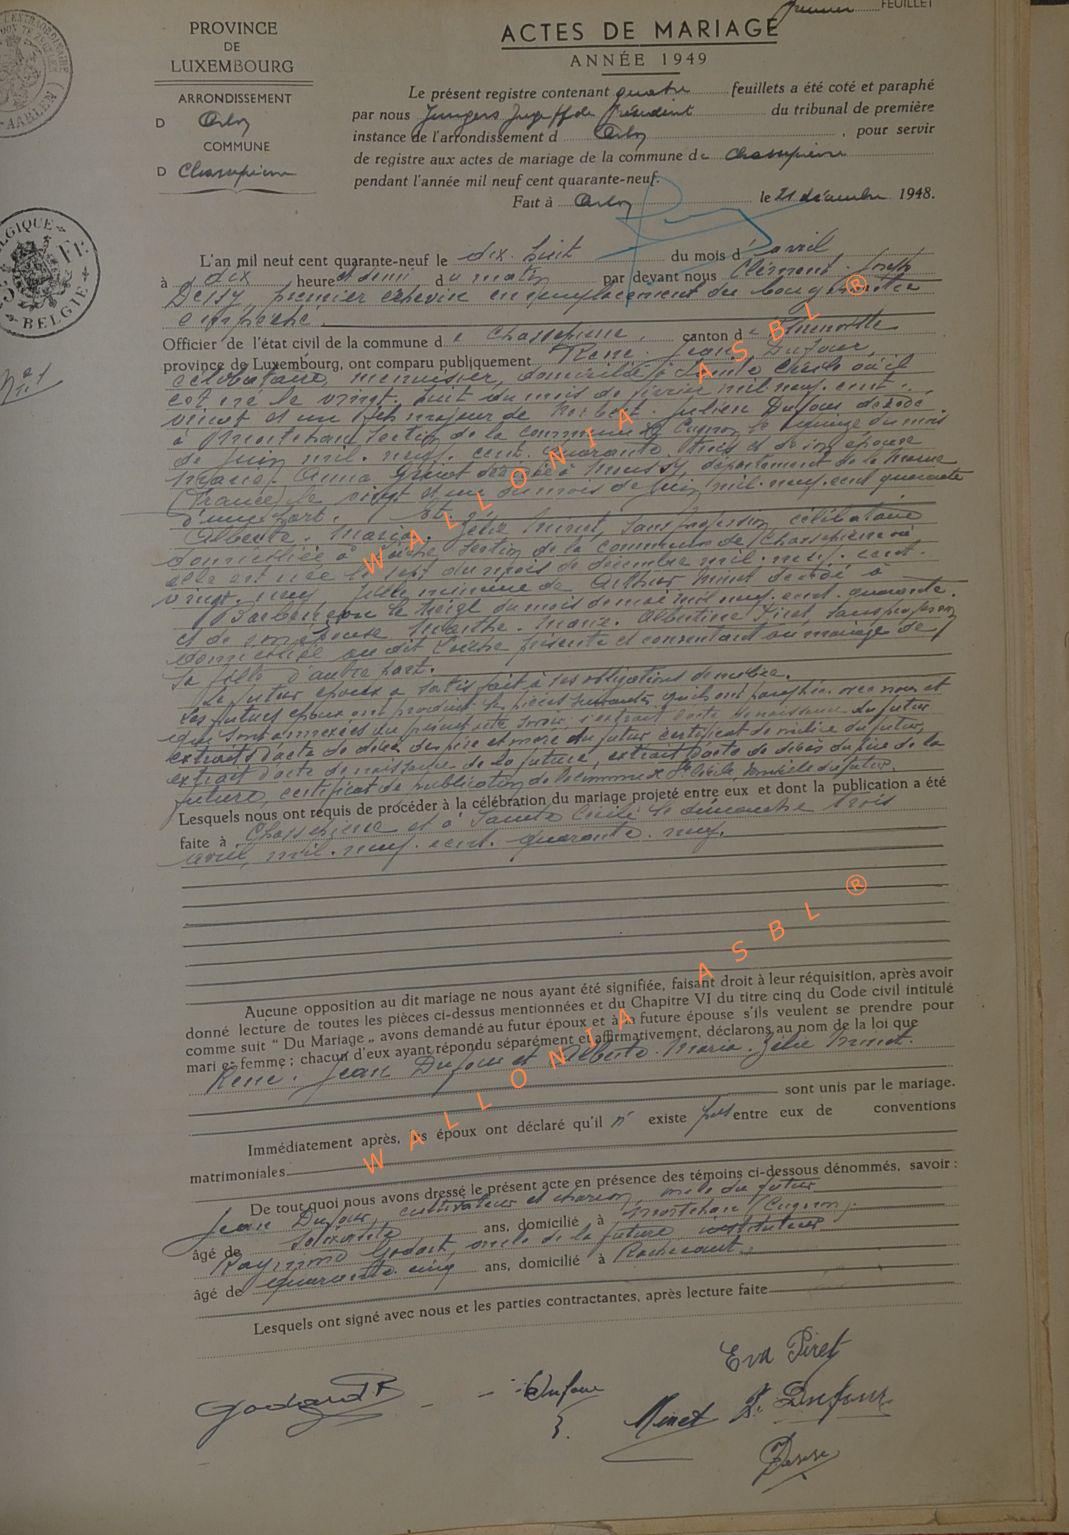 premier FEUILLET
PROVINCE
DE
LUXEMBOURG
ARRONDISSEMENT
D Arlon
COMMUNE
D Chassepierre
ACTES DE MARIAGE
ANNÉE 1949
Le présent registre contenant quatre feuillets a été coté et paraphé
par nous Président du tribunal de première
instance de l'arrondissement d Arlon , pour servir
de registre aux actes de mariage de la commune de Chassepierre
pendant l'année mil neuf cent quarante-neuf.
Fait à Arlon le 21 décembre 1948.
BELGIE
N° 1
L'an mil neuf cent quarante-neuf le dix-huit du mois d'avril
à dix heure et demi du matin par devant nous Clément-Joseph
premier échevin en remplacement du bourgmestre
empêché
Officier de l'état civil de la commune de Chassepierre canton de
province de Luxembourg, ont comparu publiquement René-Jean Dufour,
célibataire, menuisier, domicilié à Sainte Cécile où il
est né le vingt-huit du mois de février mil neuf cent
vingt et un fils majeur de Norbert-Julien Dufour décédé
à Mortehan section de la commune de Cugnon le quinze du mois
de juin mil neuf cent quarante-trois et de son épouse
Anna décédée à Mussy, département de la Marne
(France) le vingt et un du mois de juin mil neuf cent quarante
d'une part. Et
Alberte-Maria-Zélie Minet, sans profession, célibataire
domiciliée à Laiche section de la commune de Chassepierre où
elle est née le sept du mois de décembre mil neuf cent
vingt-neuf, fille mineure de Arthur Minet décédé à
Barbençon le treize du mois de mai mil neuf cent quarante
et de son épouse Marthe-Marie-Albertine Piret, sans profession
domiciliée au dit Laiche présente et consentant au mariage de
sa fille d'autre part.
Le futur époux a satisfait à ses obligations de milice.
Les futurs époux ont produit les pièces suivantes qu'ils ont paraphées avec nous et
qui sont annexées au présent acte savoir: l'extrait d'acte de naissance du futur
extraits d'acte de décès des père et mère du futur, certificat de milice du futur,
extrait d'acte de naissance de la future, extrait d'acte de décès du père de la
future, certificat de publication de la commune de Ste Cécile, domicile du futur.
Lesquels nous ont requis de procéder à la célébration du mariage projeté entre eux et dont la publication a été
faite à Chassepierre et à Sainte Cécile le dimanche trois
avril mil neuf cent quarante-neuf.
Aucune opposition au dit mariage ne nous ayant été signifiée, faisant droit à leur réquisition, après avoir
donné lecture de toutes les pièces ci-dessus mentionnées et du Chapitre VI du titre cinq du Code civil intitulé
comme suit " Du Mariage „ avons demandé au futur époux et à la future épouse s'ils veulent se prendre pour
mari et femme ; chacun d'eux ayant répondu séparément et affirmativement, déclarons au nom de la loi que
René-Jean Dufour et Alberte-Maria-Zélie Minet.
sont unis par le mariage.
Immédiatement après, les époux ont déclaré qu'il n' existe pas entre eux de conventions
matrimoniales
De tout quoi nous avons dressé le présent acte en présence des témoins ci-dessous dénommés, savoir :
Jean Dufour, cultivateur et du futur
âgé de soixante ans, domicilié à Mortehan (Cugnon).
Raymond Godart, oncle de la future instituteur
âgé de quarante-cinq ans, domicilié à
Lesquels ont signé avec nous et les parties contractantes, après lecture faite
Eva Piret
Godart R Dufour
Minet Dufour
WALLONIA ASBL ®
WALLONIA ASBL ®